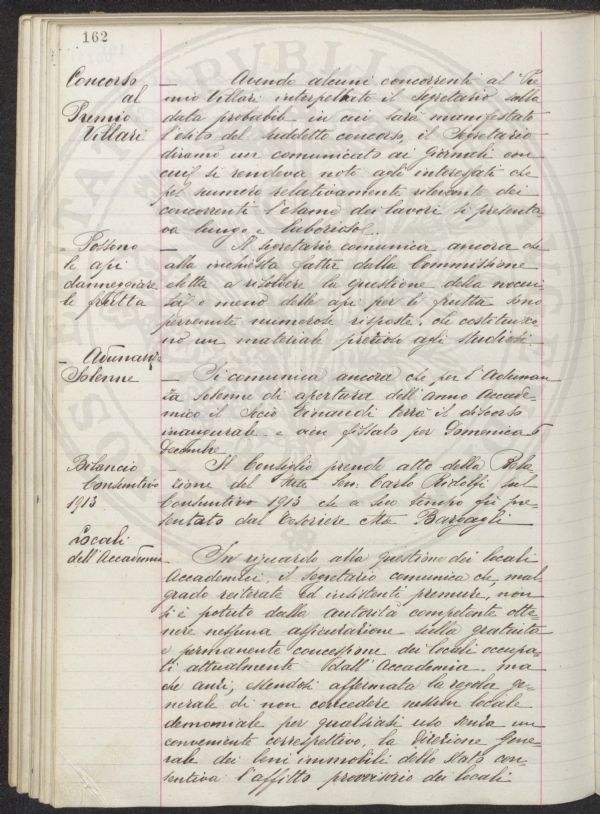 162
Concorso
al
Premio
Villari
— Avendo alcuni concorrenti al Pre
mio Villari interpellato il Segretario sulla
data probabile in cui sarà manifestato
l'esito del suddetto concorso, il Segretario
diramò un comunicato ai giornali con
cui si rendeva noto agli interessati che
pel numero relativamente rilevante dei
concorrenti l'esame dei lavori si presenta
va lungo e laborioso.
- Possono
le api
danneggiare
le frutta
— Il Segretario comunica ancora che
alla inchiesta fatta dalla Commissione
eletta a risolvere la questione della nocui
tà o meno delle api per le frutta sono
pervenute numerose risposte, che costituisco
no un materiale prezioso agli studiosi.
- Adunanza
Solenne
— Si comunica ancora che per l'Adunan
za solenne di apertura dell'anno Accade-
mico il Socio Einaudi terrà il discorso
inaugurale e vien fissato per Domenica 6
Decembre.
Bilancio
Consuntivo
1913
— Il Consiglio prende atto della Rela-
zione del Sen. Carlo Ridolfi sul
Consuntivo 1913 che a suo tempo fu pre-
sentato dal Tesoriere Bargagli
Locali
dell'Accademia
— In riguardo alla questione dei locali
Accademici, il Segretario comunica che, mal
grado reiterate ed insistenti premure, non
si è potuto dalle autorità competente otte-
nere nessuna assicurazione sulla gratuita
e permanente concessione dei locali occupa-
ti attualmente dall'Accademia. ma
che anzi, essendosi affermata la regola ge-
nerale di non concedere nessun locale
demaniale per qualsiasi uso senza un
conveniente correspettivo, la Direzione Gene-
rale dei beni immobili dello Stato con-
sentiva l'affitto provvisorio dei locali